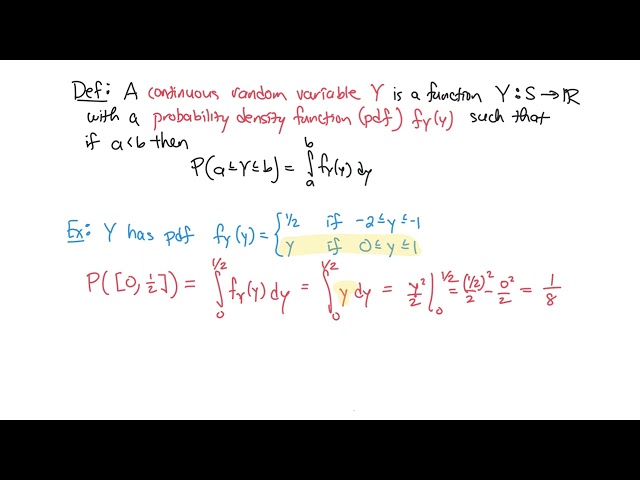 Def: A continuous random variable Y is a function Y: S → ℝ
with a probability density function (pdf) f_Y(y) such that
if a < b then
P(a ≤ Y ≤ b) = ∫_a^b f_Y(y) dy
Ex: Y has pdf f_Y(y) = { 1/2 if -2 ≤ y ≤ -1
y if 0 ≤ y ≤ 1
P([0, 1/2]) = ∫_0^{1/2} f_Y(y) dy = ∫_0^{1/2} y dy = y²/2 |_0^{1/2} = (1/2)²/2 - 0²/2 = 1/8